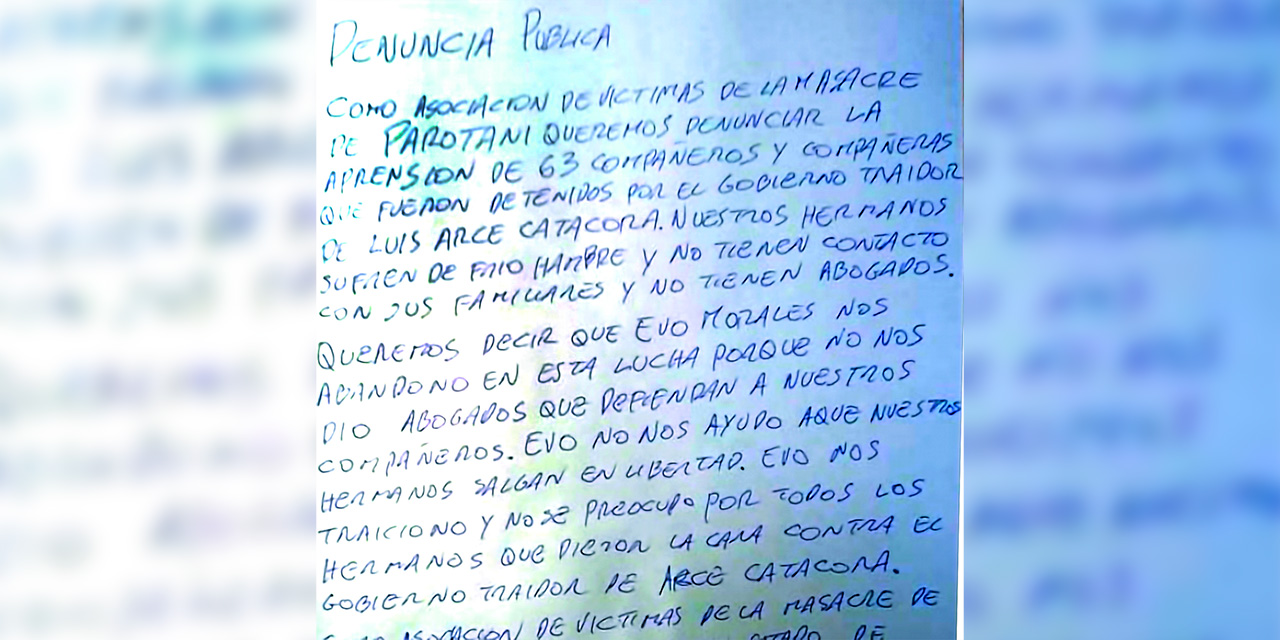 DENUNCIA PUBLICA
COMO ASOCIACION DE VICTIMAS DE LA MASACRE
DE PAROTANI QUEREMOS DENUNCIAR LA
APRENSION DE 63 COMPAÑEROS Y COMPAÑERAS
QUE FUERON DETENIDOS POR EL GOBIERNO TRAIDOR
DE LUIS ARCE CATACORA. NUESTROS HERMANOS
SUFREN DE FRIO HAMBRE Y NO TIENEN CONTACTO
CON SUS FAMILIARES Y NO TIENEN ABOGADOS.
QUEREMOS DECIR QUE EVO MORALES NOS
ABANDONO EN ESTA LUCHA PORQUE NO NOS
DIO ABOGADOS QUE DEFIENDAN A NUESTROS
COMPAÑEROS. EVO NO NOS AYUDO AQUE NUESTROS
HERMANOS SALGAN EN LIBERTAD. EVO NOS
TRAICIONO Y NO SE PREOCUPO POR TODOS LOS
HERMANOS QUE DIERON LA CARA CONTRA EL
GOBIERNO TRAIDOR DE ARCE CATACORA.
COMO ASOCIACION DE VICTIMAS DE LA MASACRE DE
DE